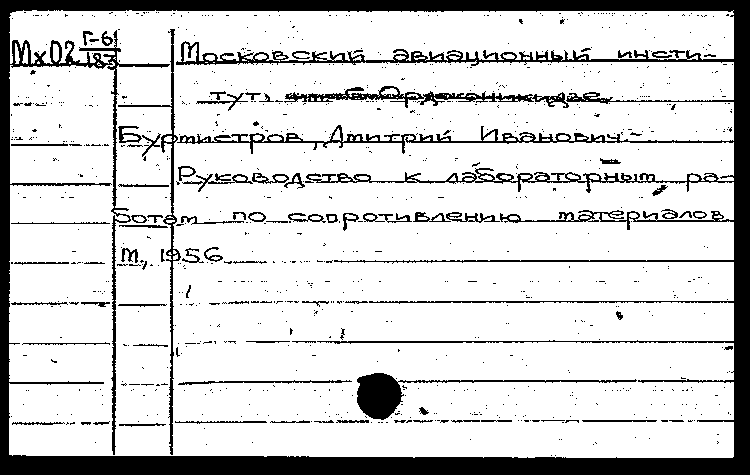 Мх02 Г-61/183 Московский авиационный инсти-
тут.
Бурмистров, Дмитрий Иванович.-
Руководство к лабораторным ра-
ботам по сопротивлению материалов
М., 1956